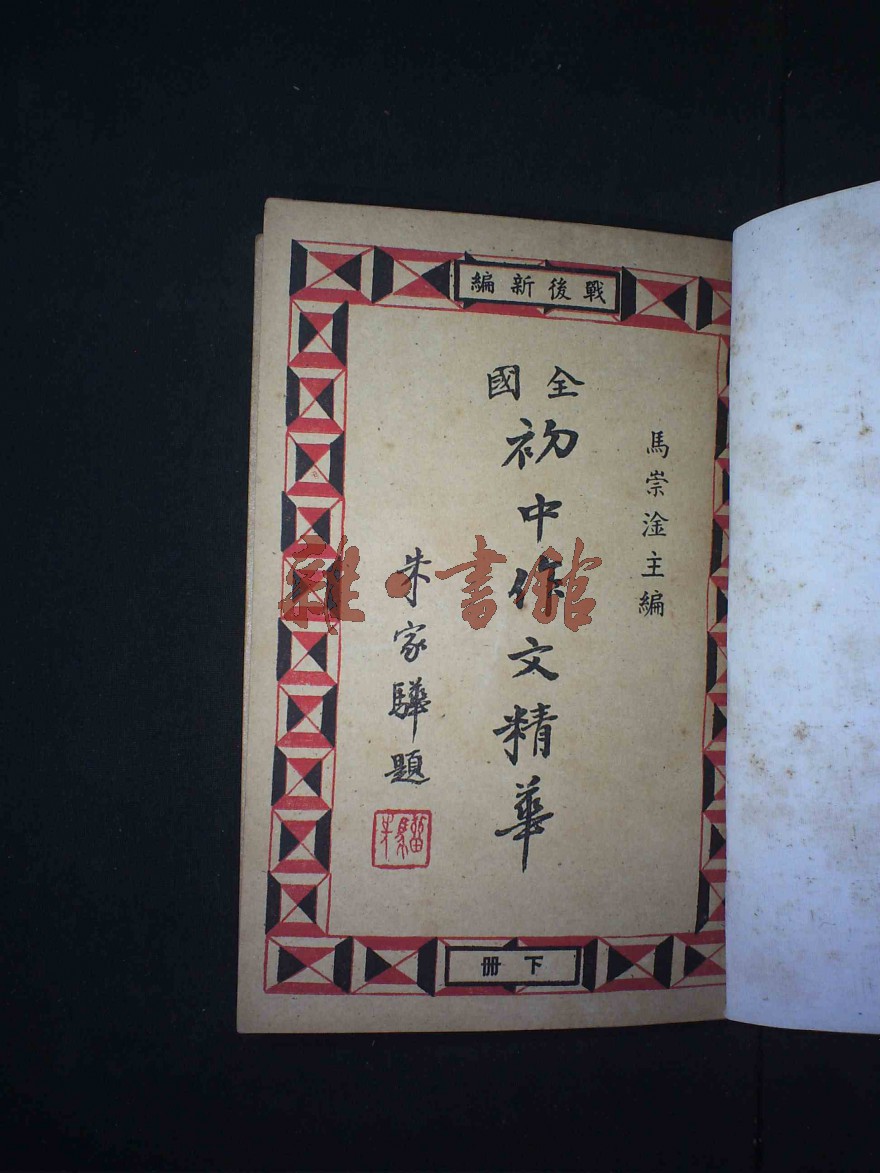 戰後新編
馬崇淦主編
全國
初中作文精華
朱家驊題
下冊
雜書館